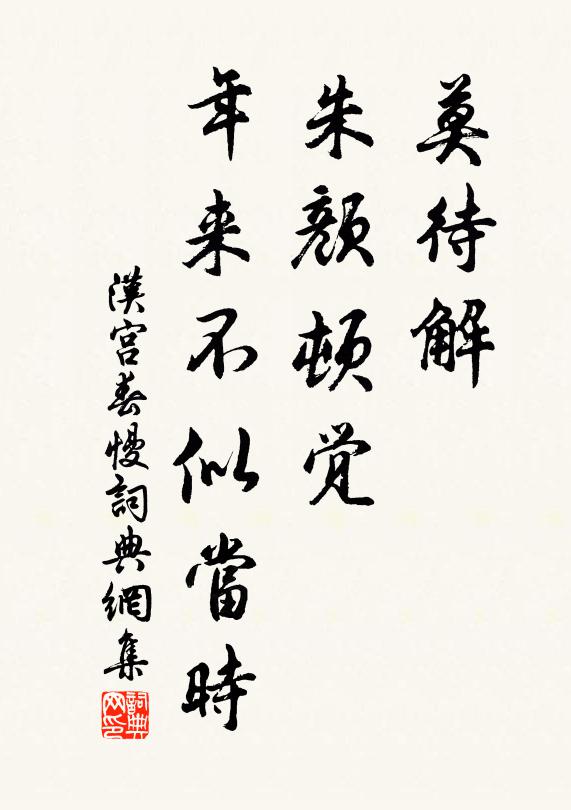 莫待解
朱顔頓覚
年来不似當時
漢宮春慢詞典網集
詞典网印